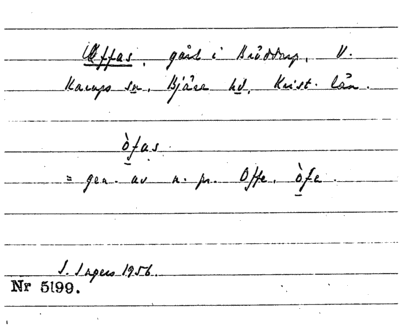 Offas, gård i Bröddarp, V.
Karups sn, Bjäre hd, Krist. län.
òfas
= gen. av n. pr. Offe, òfe.
S. Ingers 1956.
Nr 5199.